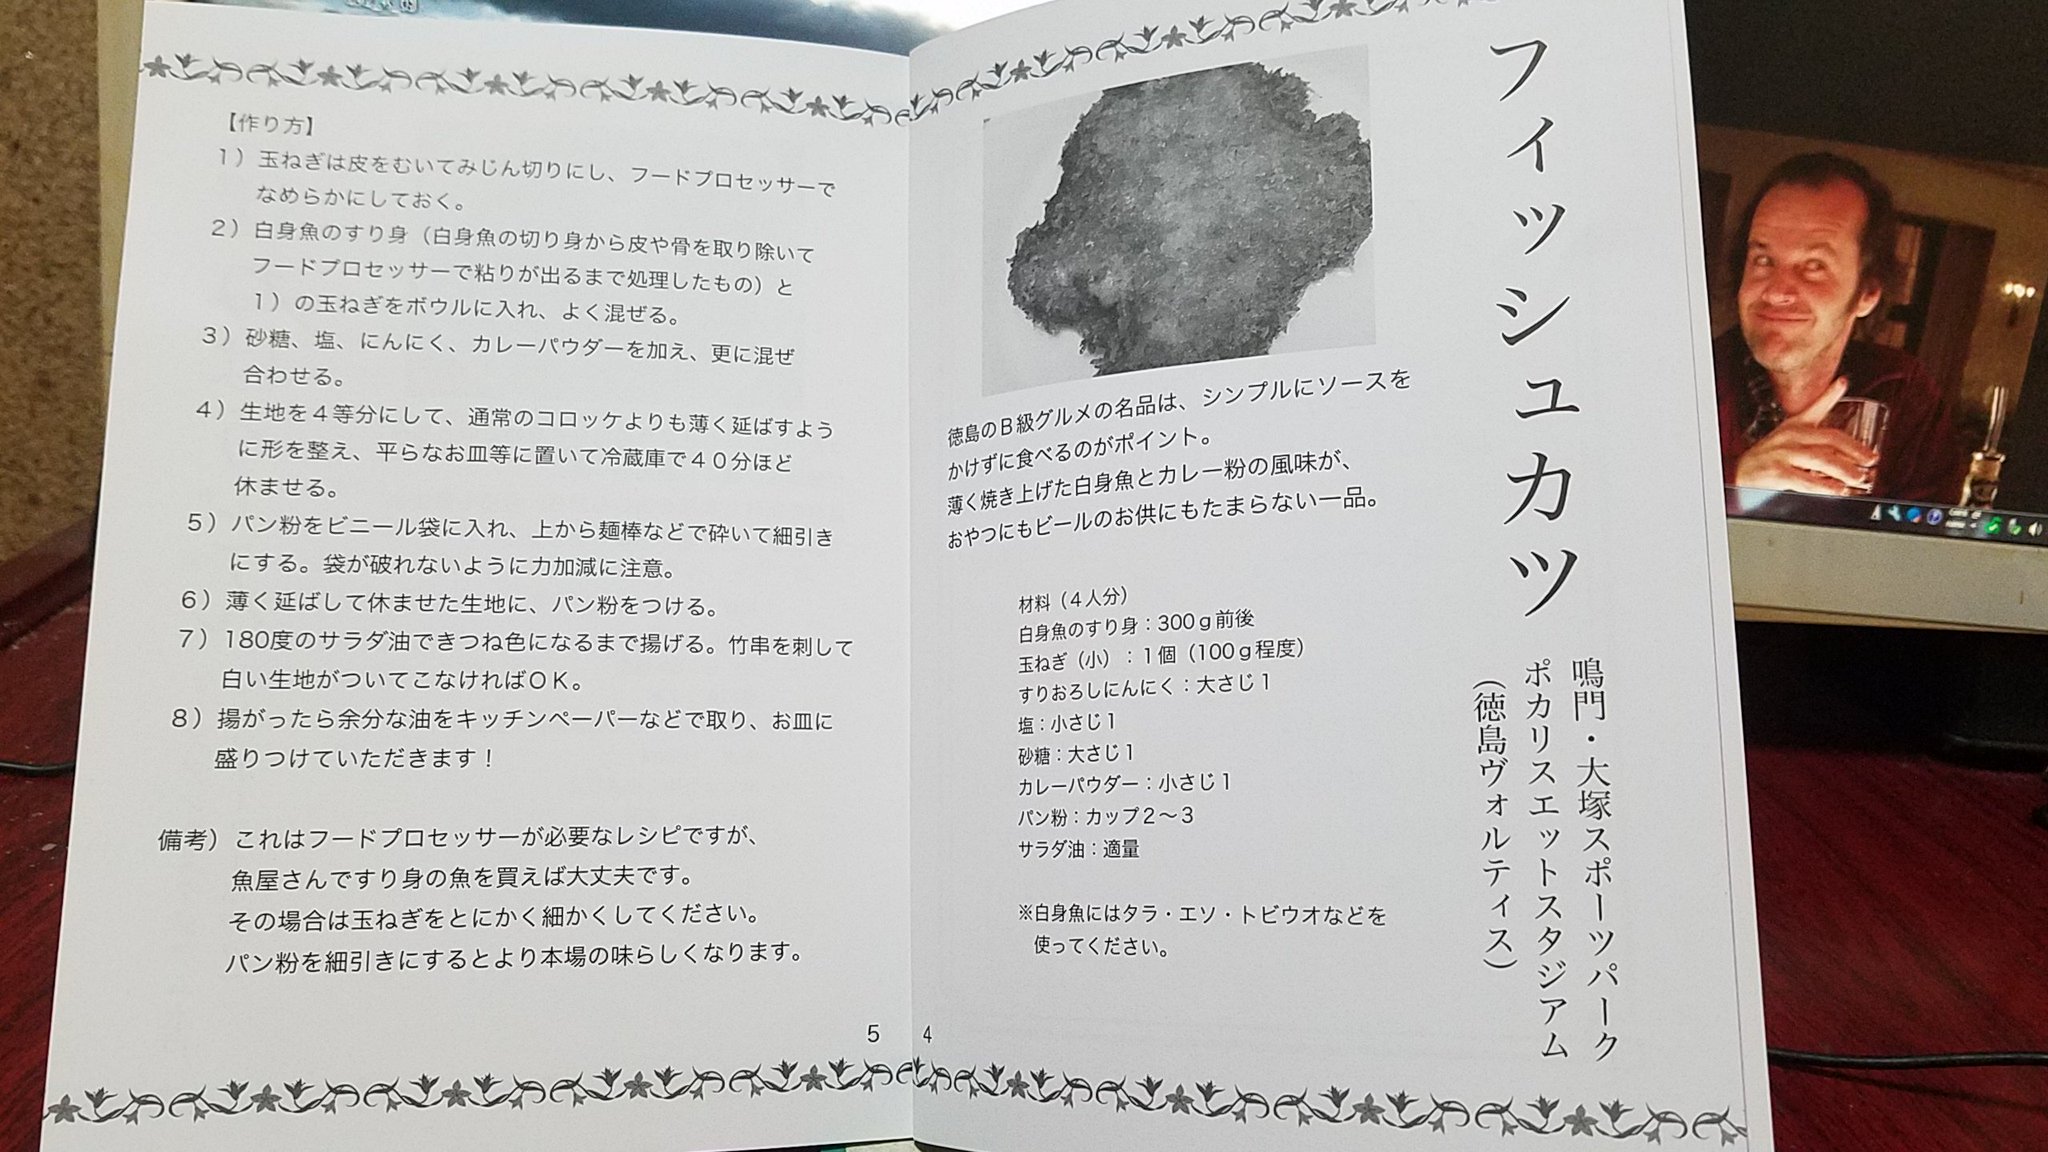 フィッシュカツ
鳴門・大塚スポーツパーク
ポカリスエットスタジアム
（徳島ヴォルティス）
徳島のＢ級グルメの名品は、シンプルにソースを
かけずに食べるのがポイント。
薄く焼き上げた白身魚とカレー粉の風味が、
おやつにもビールのお供にもたまらない一品。
材料（４人分）
白身魚のすり身：300ｇ前後
玉ねぎ（小）：１個（100ｇ程度）
すりおろしにんにく：大さじ１
塩：小さじ１
砂糖：大さじ１
カレーパウダー：小さじ１
パン粉：カップ２〜３
サラダ油：適量
※白身魚にはタラ・エソ・トビウオなどを
使ってください。
4
【作り方】
１）玉ねぎは皮をむいてみじん切りにし、フードプロセッサーで
なめらかにしておく。
２）白身魚のすり身（白身魚の切り身から皮や骨を取り除いて
フードプロセッサーで粘りが出るまで処理したもの）と
１）の玉ねぎをボウルに入れ、よく混ぜる。
３）砂糖、塩、にんにく、カレーパウダーを加え、更に混ぜ
合わせる。
４）生地を４等分にして、通常のコロッケよりも薄く延ばすよう
に形を整え、平らなお皿等に置いて冷蔵庫で４０分ほど
休ませる。
５）パン粉をビニール袋に入れ、上から麺棒などで砕いて細引き
にする。袋が破れないように力加減に注意。
６）薄く延ばして休ませた生地に、パン粉をつける。
７）180度のサラダ油できつね色になるまで揚げる。竹串を刺して
白い生地がついてこなければＯＫ。
８）揚がったら余分な油をキッチンペーパーなどで取り、お皿に
盛りつけていただきます！
備考）これはフードプロセッサーが必要なレシピですが、
魚屋さんですり身の魚を買えば大丈夫です。
その場合は玉ねぎをとにかく細かくしてください。
パン粉を細引きにするとより本場の味らしくなります。
5